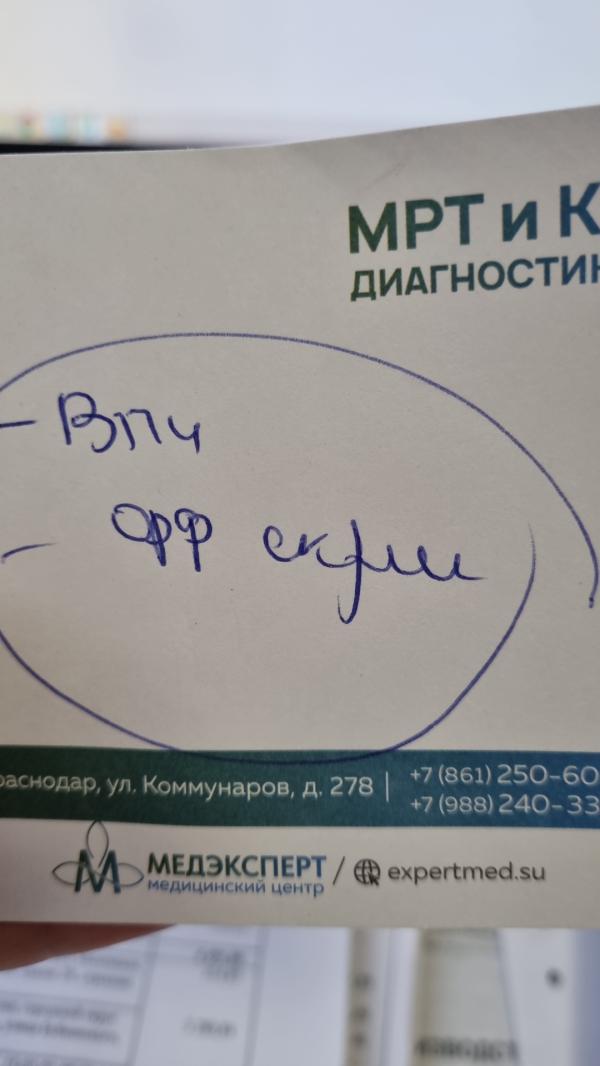 МРТ и К
ДИАГНОСТИК
- ВПЧ
- ФФ скрин
раснодар, ул. Коммунаров, д. 278 | +7 (861) 250-60
+7 (988) 240-33
МЕДЭКСПЕРТ / expertmed.su
медицинский центр